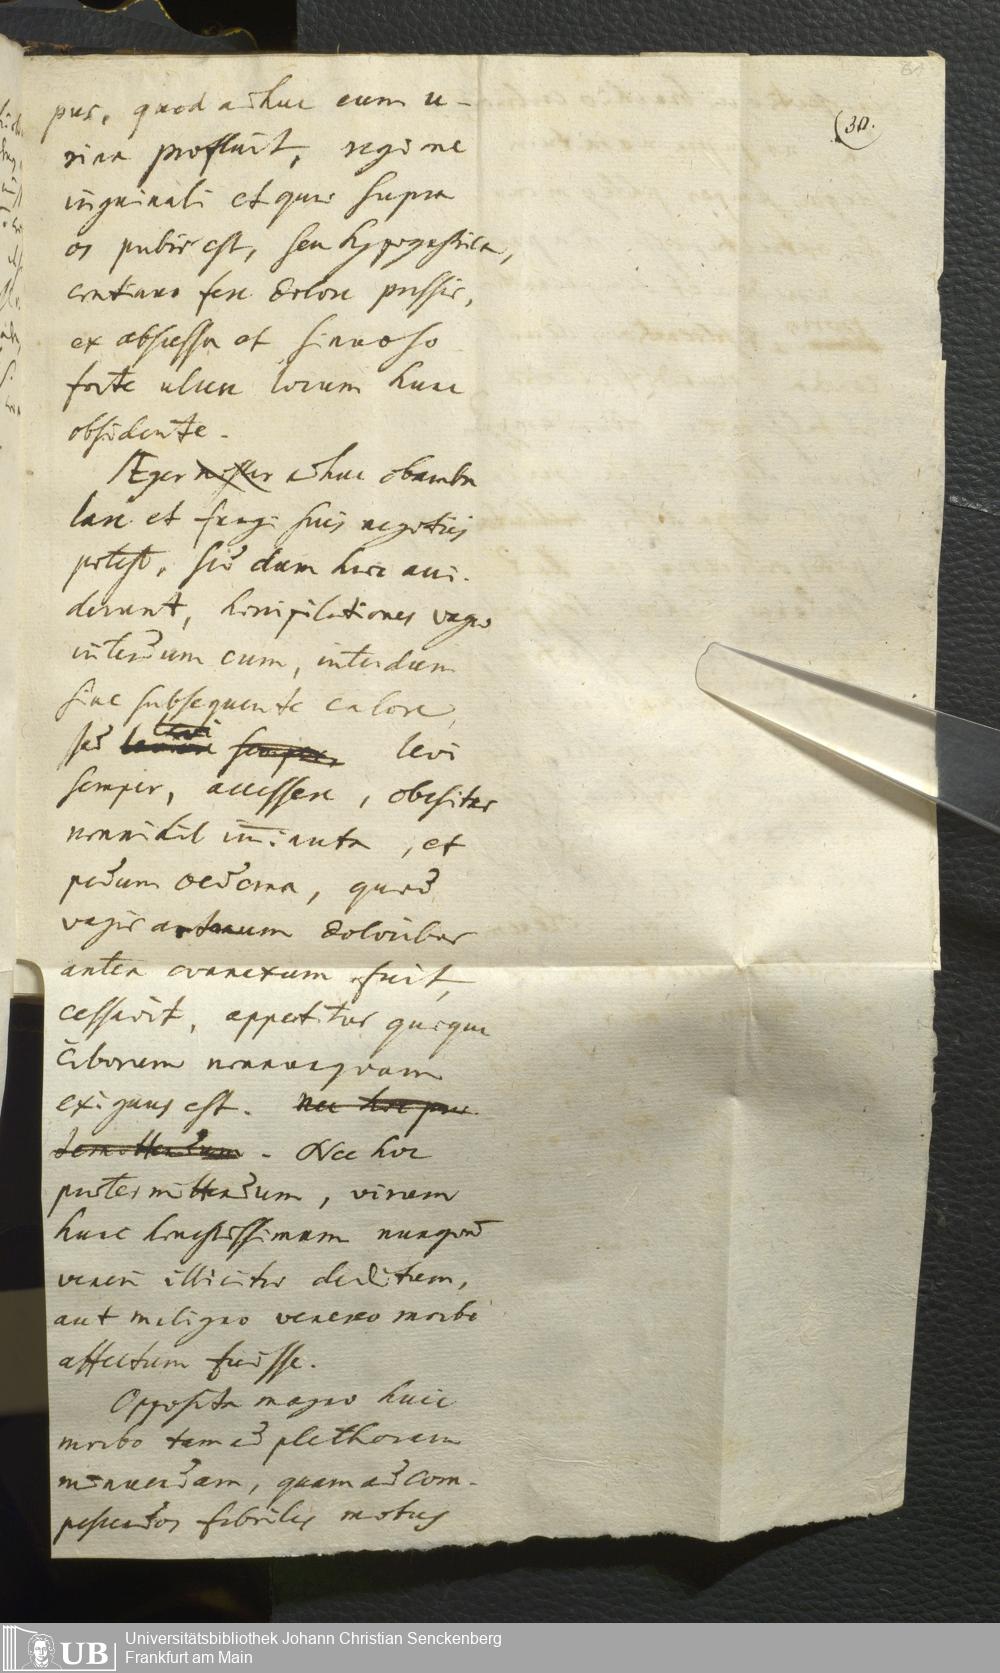 (30.
pus, quod adhuc cum u-
rina profluit, regione
inguinali et quae supra
os pubis est, seu hypogastrica,
continuo fere dolore pressis,
ex abscessu et sinuoso
forte ulcere locum hunc
obsidente.
Æger noster adhuc obambu
lare et fungi suis negotiis
potest, sed dum haec acci-
derunt, horripilationes vagae
interdum cum, interdum
sine subsequente calore,
sed levi semper, levi
semper, accessere, obesitas
nonnihil imminuta, et
pedum oedema, quod
vagis artuum doloribus
antea connexum fuit,
cessavit, appetitus quoque
ciborum nonnunquam
exiguus est. Nec hoc prae
termittendum. Nec hoc
praetermittendum, virum
hunc honestissimum nunquam
veneri illicitae deditum,
aut maligno venereo morbo
affectum fuisse.
Opposita magno huic
morbo tam ad plethoram
minuendam, quam ad com-
pescendos febriles motus
Universitätsbibliothek Johann Christian Senckenberg
Frankfurt am Main
UB